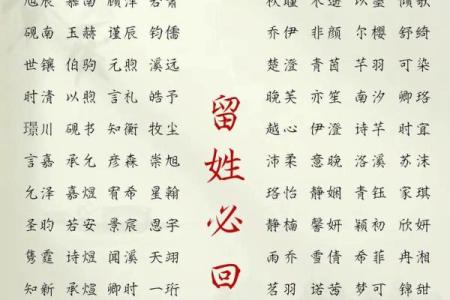 砚南 玉赫 谨辰 钧儒
世镶 伯驹 元煦 溪远
时清 以煦 言礼 皓予
璟川 砚书 知衡 牧尘
言嘉 承允 彦森 崇旭
允泽 嘉煜 宥希 星翰
圣昀 若安 景宸 思宇
隽霆 诗煜 闻溪 天翊
知新 承煜 卿时 一珩
留姓必回
乔伊 非颜 尔樱 舒绮
楚澄 青茵 芊羽 可染
晚芙 亦笙 南汐 卿珞
越心 伊澄 诗芊 时宜
沛柔 意晚 洛溪 苏沫
珞怡 静姻 青钰 家琪
静楠 馨妍 颖初 欣妍
雨乔 雪倩 希菲 冉湘
若羽 诺茜 梦可 锦甜